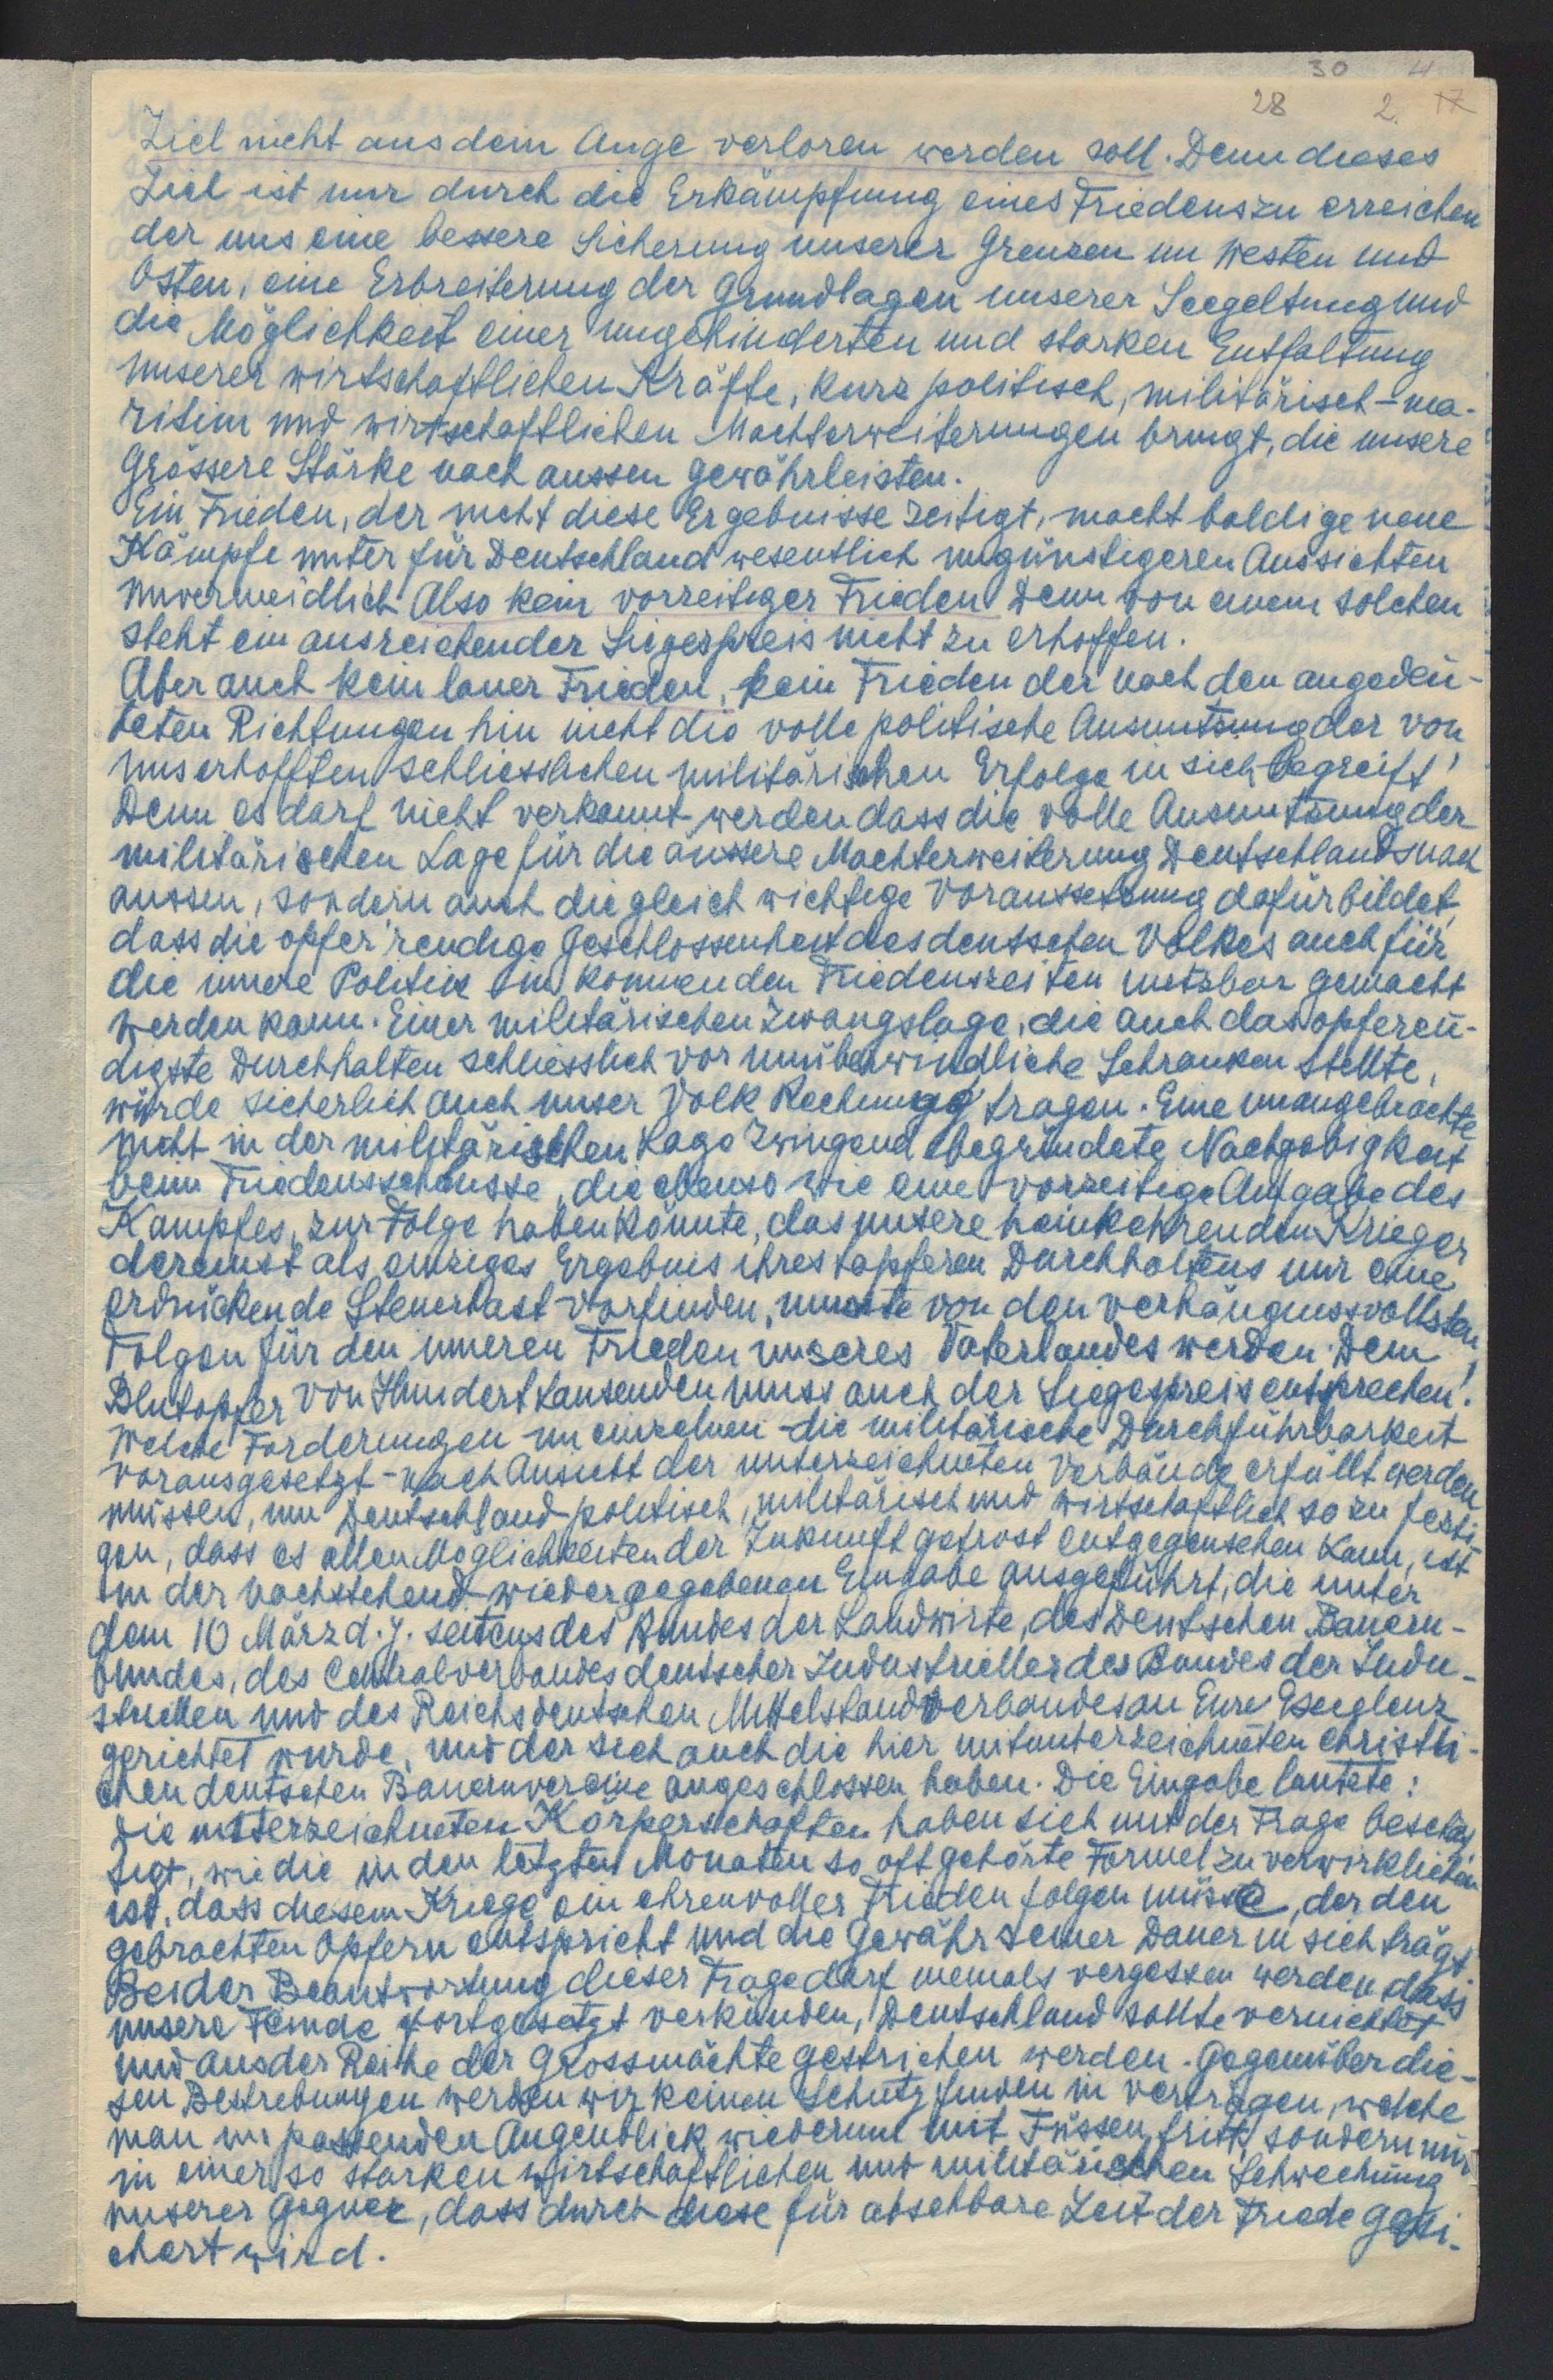 30 4
28 2. 17
Ziel nicht aus dem Auge verloren werden soll. Denn dieses
Ziel ist nur durch die Erkämpfung eines Friedens zu erreichen
der uns eine bessere Sicherung unserer Grenzen im Westen und
Osten, eine Erbreiterung der Grundlagen unserer Seegeltung und
die Möglichkeit einer ungehinderten und starken Entfaltung
unserer wirtschaftlichen Kräfte, kurz politisch, militärisch-ma-
ritim und wirtschaftlichen Machterweiterungen bringt, die unsere
Grössere Stärke nach aussen gewährleisten.
Ein Frieden, der nicht diese Ergebnisse zeitigt, macht baldige neue
Kämpfe unter für Deutschland wesentlich ungünstigeren Aussichten
unvermeidlich Also kein vorzeitiger Frieden Denn von einem solchen
steht ein ausreichender Siegespreis nicht zu erhoffen.
Aber auch kein lauer Frieden, kein Frieden der nach den angedeu-
teten Richtungen hin nicht die volle politische Ausnutzung der von
uns erhofften schliesslichen militärischen Erfolge in sich begreift!
Denn es darf nicht verkannt werden dass die volle Ausnutzung der
militärischen Lage für die äussere Machterweiterung Deutschlands nach
aussen, sondern auch die gleich wichtige Voraussetzung dafür bildet,
dass die opferreudige Geschlossenheit des deutschen Volkes auch für
die innere Politik in kommenden Friedenszeiten nutzbar gemacht
werden kann. Einer militärischen Zwangslage, die auch das opfereu-
digste Durchhalten schliesslich vor unüberwindliche Schranken stellte,
würde sicherlich auch unser Volk Rechnung tragen. Eine unangebrachte
nicht in der militärischen Lage zwingend begründete Nachgebigkeit
beim Friedensschlusse, die ebenso wie eine vorzeitige Aufgabe des
Kampfes, zur Folge haben könnte, das unsere heimkehrenden Krieger
dereinst als einziges Ergebnis ihres tapferen Durchhaltens nur eine
erdrückende Steuerlast vorfinden, musste von den verhängnissvollsten
Folgen für den inneren Frieden unseres Vaterlandes werden. Dem
Blutopfer von Hunderttausenden muss auch der Siegespreis entsprechen!
Welche Forderungen im einzelnen - die militärische Durchführbarkeit
vorausgesetzt - nach Ansicht der unterzeichneten Verbände erfüllt werden
müssen, um Deutschland politisch, militärisch und wirtschaftlich so zu festi-
gen, dass es allen Möglichkeiten der Zukunft getrost entgegensehen kann, ist
in der nachstehend wiedergegebenen Eingabe ausgeführt, die unter
dem 10 März d. J. seitens des Bundes der Landwirte, des Deutschen Bauern-
bundes, des Centralverbandes deutscher Industrieller des Bundes der Indu-
striellen und des Reichsdeutschen Mittelstandverbandes an Eure Exzellenz
gerichtet wurde, und der sich auch die hier mitunterzeichneten christli-
chen deutschen Bauernvereine angeschlossen haben. Die Eingabe lautete:
Die unterzeichneten Körperschaften haben sich mit der Frage beschäf
tigt, wie die in den letzten Monaten so oft gehörte Formel zu verwirklichen
ist, dass diesem Kriege ein ehrenvoller Frieden folgen müsse, der den
gebrachten Opfern entspricht und die Gewähr seiner Dauer in sich trägt
Bei der Beantwortung dieser Frage darf niemals vergessen werden dass
unsere Feinde fortgesetzt verkünden, Deutschland sollte vernichtet
und aus der Reihe der Grossmächte gestrichen werden. Gegenüber die-
sen Bestrebungen werden wir keinen Schutz finden in verträgen, welche
man im passenden Augenblick wiederum mit Füssen tritt, sondern nur
in einer so starken wirtschaftlichen und militärischen Schwechung
unserer Gegner, dass durch diese für absehbare Zeit der Friede gesi-
chert wird.